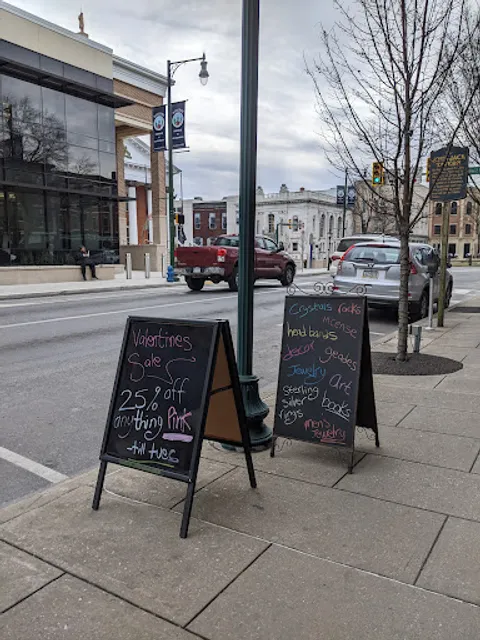 Valentines
Sale
25% off
anything Pink
till tues
Crystals rocks
incense
head bands
decor geodes
Jewelry Art
sterling
silver books
rings
men's
Jewelry